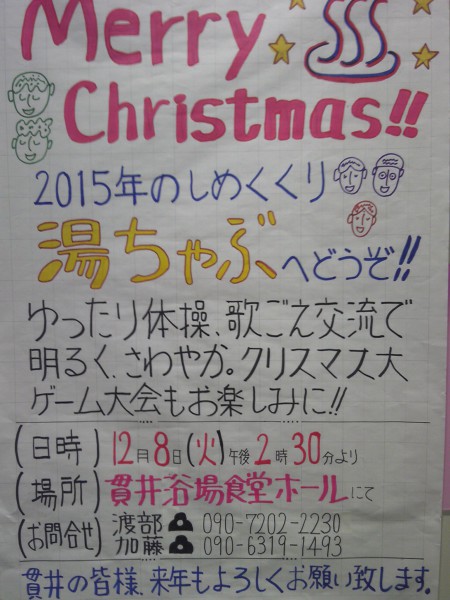 Merry
Christmas!!
2015年のしめくくり
湯ちゃぶへどうぞ!!
ゆったり体操、歌ごえ交流で
明るく、さわやか。クリスマス大
ゲーム大会もお楽しみに!!
(日時) 12月8日(火)午後2時30分より
(場所) 貫井浴場食堂ホールにて
(お問合せ) 渡部 ☎ 090-7202-2230
加藤 ☎ 090-6319-1493
貫井の皆様、来年もよろしくお願い致します。